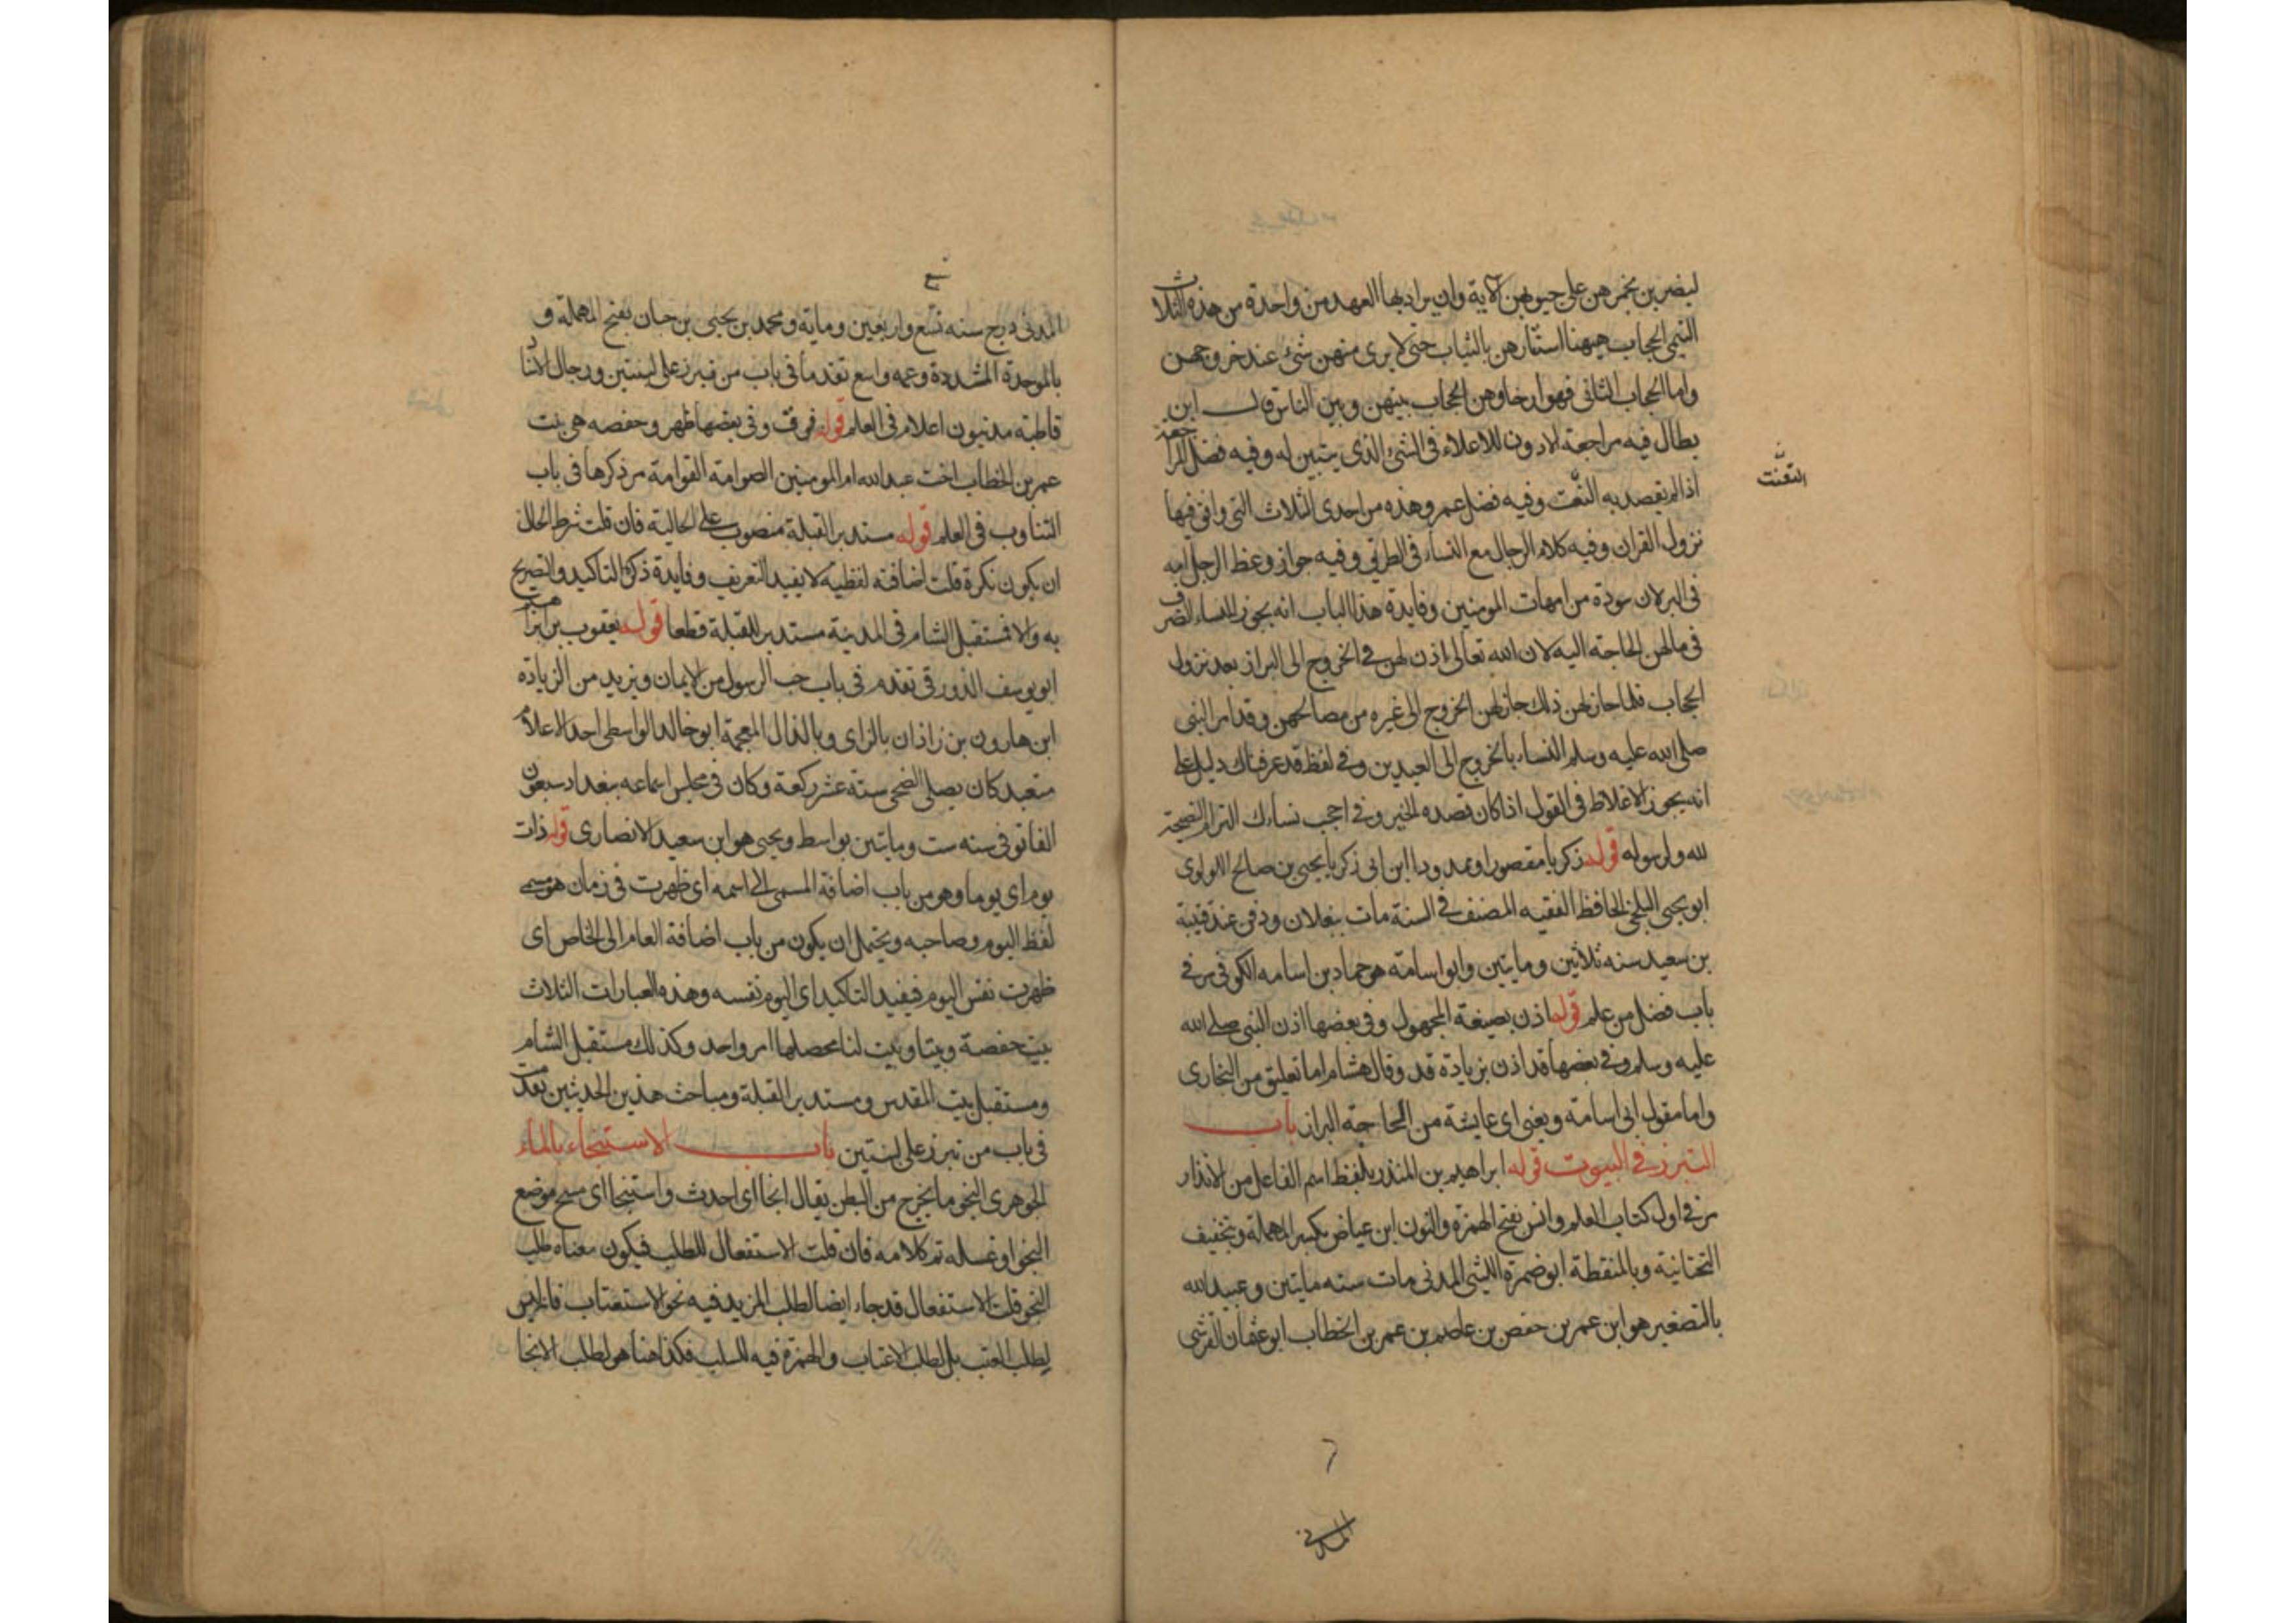 ليضربن بخمرهن على جيوبهن الآية وان يراد بها العهد من واحدة من هذه الثلاث
التيمي الحجاب ههنا استتارهن بالثياب حتى لا يرى منهن شئ عند خروجهن
واما الحجاب الثاني فهو ارخاوهن الحجاب بينهن وبين الناس قال ابن
بطال فيه مراجعة الادون للاعلاء في الشئ الذي يتبين له وفيه فضل المراجعة
اذا لم يقصد به التعنت وفيه فضل عمر وهذه من احدى الثلاث التي وافق فيها
التعنت
نزول القران وفيه كلام الرجال مع النساء في الطريق وفيه جواز وعظ الرجل امه
في البر لان سودة من امهات المومنين وفايدة هذا الباب انه يجوز للنساء التصرف
في مالهن الحاجة اليه لان الله تعالى اذن لهن في الخروج الى البراز بعد نزول
الحجاب فلما جاز لهن ذلك جاز لهن الخروج الى غيره من مصالحهن وقد امر النبي
صلى الله عليه وسلم النساء بالخروج الى العيدين وفي لفظ قد عرفناك دليل على
انه يجوز الاغلاظ في القول اذا كان قصده الخير وفي احجب نساءك التزام النصيحة
لله ولرسوله قوله زكريا مقصورا وممدودا ابن ابي زكريا يحيى بن صالح اللولوي
ابو يحيى البلخي الحافظ الفقيه المصنف في السنة مات ببغلان ودفن عند قتيبة
بن سعيد سنه ثلاثين ومايتين وابو اسامة هو حماد بن اسامه الكوفي مر في
باب فضل من علم قوله اذن بصيغة المجهول وفي بعضها اذن النبي صلى الله
عليه وسلم وفي بعضها قد اذن بزيادة قد وقال هشام اما تعليق من البخاري
واما مقول ابي اسامة ويعني اي عايشة من الحاجة البراز باب
التبرز في البيوت قوله ابراهيم بن المنذر بلفظ اسم الفاعل من الانذار
مر في اول كتاب العلم وانس بفتح الهمزة والنون ابن عياض بكسر المهملة وتخفيف
التحتانية وبالمنقطة ابو ضمرة الليثي المدني مات سنه مايتين وعبيد الله
بالتصغير هو ابن عمر بن حفص بن عاصم بن عمر بن الخطاب ابو عثمان القرشي
المدني
المدني درج سنه تسع واربعين وماية ومحمد بن يحيى بن حبان بفتح المهملة و
بالموحدة المشددة وعمه واسع تقدما في باب من تبرز على لبنتين ورجال الاسناد
قاطبة مدنيون اعلام في العلم قوله فوق وفي بعضها ظهر وحفصه هي بنت
عمر بن الخطاب اخت عبد الله ام المومنين الصوامة القوامة مر ذكرها في باب
التناوب في العلم قوله مستدبر القبلة منصوب على الحالية فان قلت شرط الحال
ان يكون نكرة قلت اضافته لفظية لا يفيد التعريف وفايدة ذكره التاكيد والتصريح
به والا فمستقبل الشام في المدينة مستدبر للقبلة قطعا قوله يعقوب بن ابراهيم
ابو يوسف الدورقي تقدم في باب حب الرسول من الايمان ويزيد من الزيادة
ابن هارون بن زاذان بالزاي وبالذال المعجمة ابو خالد الواسطي احد الاعلام
متعبد كان يصلي الضحى ستة عشر ركعة وكان في مجلس اسماعه ببغداد سبعون
الفا توفي سنه ست ومايتين بواسط ويحيى هو ابن سعيد الانصاري قوله ذات
يوم اي يوما وهو من باب اضافة المسمى الى اسمه اي ظهرت في زمان هو مسمى
لفظ اليوم وصاحبه ويحتمل ان يكون من باب اضافة العام الى الخاص اي
ظهرت نفس اليوم فيفيد التاكيد اي اليوم نفسه وهذه العبارات الثلاث
بيت حفصة وبيتا وبيت لنا محصلها امر واحد وكذلك مستقبل الشام
ومستقبل بيت المقدس ومستدبر القبلة ومباحث هذين الحديثين تقدمت
في باب من تبرز على لبنتين باب الاستنجاء بالماء
الجوهري النجو ما يخرج من البطن يقال انجا اي احدث واستنجا اي مسح موضع
النجو او غسله تم كلامه فان قلت الاستفعال للطلب فيكون معناه طلب
النجو قلت الاستفعال قد جاء ايضا لطلب المزيد فيه نحو الاستعتاب فانه ليس
لطلب العتب بل لطلب الاعتاب والهمزة فيه للسلب فكذا هنا هو لطلب الانجا